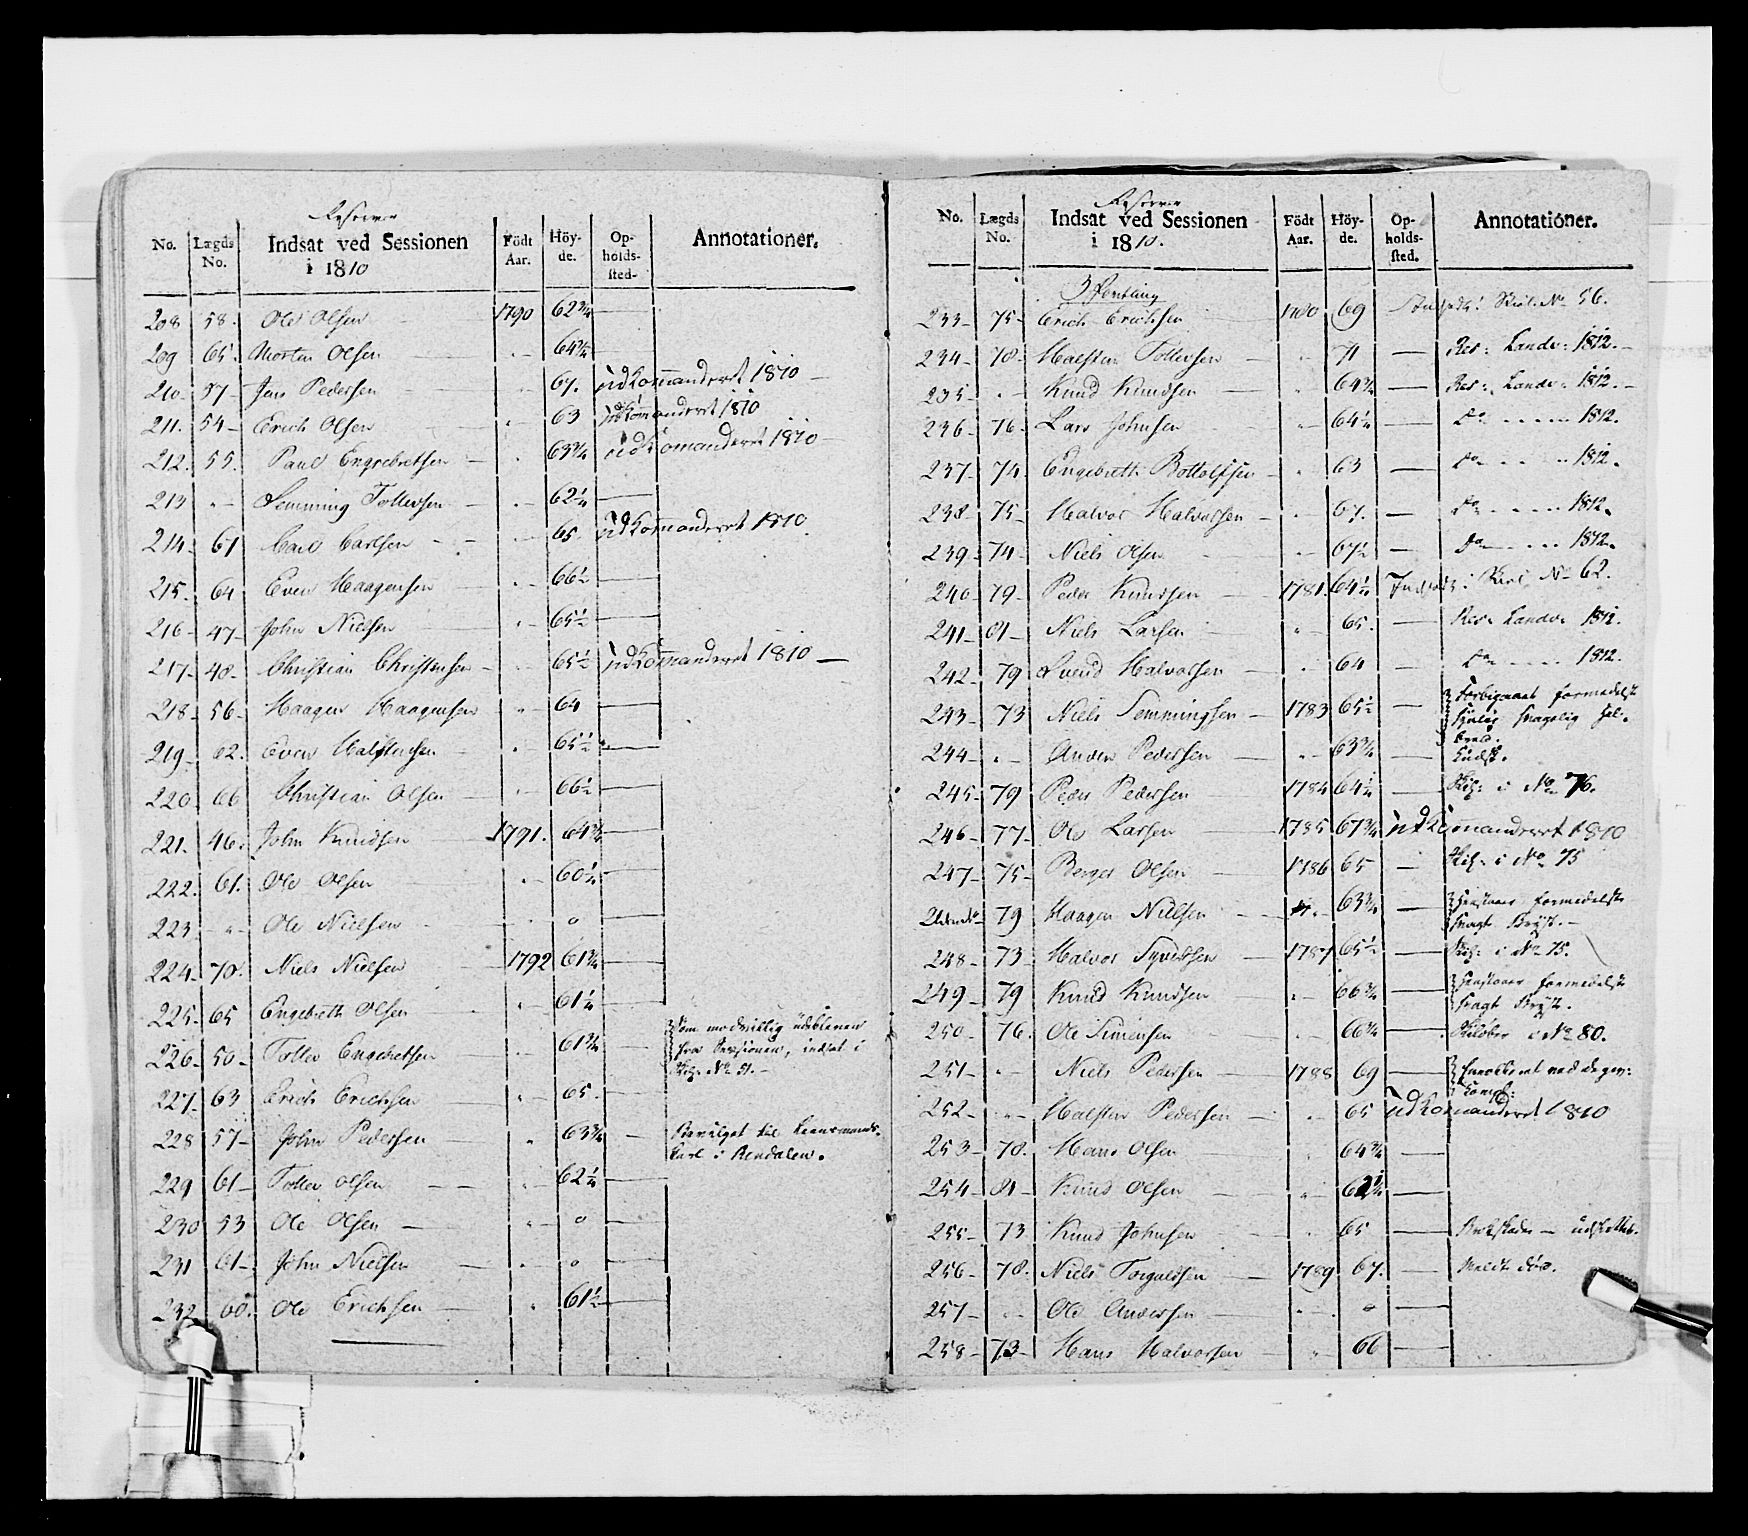 Reserver
No. Lægds No. Indsat ved Sessionen i 1810 Födt Aar. Höyde. Opholdssted. Annotationer.
208 58. Ole Olsen 1790 62 3/4
209 65. Morten Olsen 64 3/4
210 57 Jens Pedersen 67. udkommanderet 1810
211. 54 Erich Olsen 63 udkommanderet 1810
212. 55. Paul Engebretsen 63 3/4 udkommanderet 1810
213 " Semming Tollevsen 62 1/4
214 61 Carl Carlsen 65. udkommanderet 1810
215. 64 Even Haagensen 66 1/2
216 47 John Nielsen 65 1/2
217 48 Christian Christensen 65 1/2 udkommanderet 1810
218 56 Haagen Haagensen 64
219 62. Even Halstensen 65 1/2
220 66 Christian Olsen 66 1/2
221. 46. John Knudsen 1791. 64 3/4
222. 61. Ole Olsen 60 1/4
223 " Ole Nielsen 0
224 70. Niels Nielsen 1792 61 3/4
225. 65 Engebreth Olsen 61 1/4
226 50 Tollev Engebretsen 61 3/4 Som modvillig udebleven
fra Sessionen, indsat i
No 51.
227 63 Erich Erichsen 65.
228 57 John Pedersen 63 3/4 Bevilget til Lensmands-
karl i Rendalen.
229 61 Tollev Olsen 62 1/4
230 53 Ole Olsen 0
231 61 John Nielsen 0
232 60. Ole Erichsen 61 1/2
Reserver
No. Lægds No. Indsat ved Sessionen i 1810. Födt Aar. Höyde. Opholdssted. Annotationer.
233 75 Erich Erichsen 1780 69 No 56.
234 78. Halsten Tollevsen 71 Res: Landv: 1812.
235 " Knud Knudsen 64 3/4 Res: Landv: 1812.
236 76 Lars Johnsen 64 1/4 do 1812.
237. 74 Engebreth Bottolfsen 63 do 1812.
238 75 Halvor Halvorsen 67. do 1812.
239 74 Niels Olsen 67 1/2 do 1812.
240 79 Peder Knudsen 1781. 64 1/4 No 62.
241 81 Niels Larsen 65. Res: Landv: 1812.
242 79 Svend Halvorsen 64 do 1812.
243 73 Niels Semmingsen 1783 65 1/2 Forbigaaet formedelst
svagelig Hel-
bred.
244 " Anders Pedersen 63 3/4
245 79 Peder Pedersen 1784 64 1/4 i No 76.
246 77 Ole Larsen 1785 67 3/4 udkommanderet 1810
247 75 Berger Olsen 1786 65 i No 75
79 Haagen Nielsen 63 3/4 formedelst
svagt Bryst.
248 73 Halvor Syversen 1787 65 1/2 i No 75.
249 79 Knud Knudsen 66 3/4 formedelst
svagt Bryst.
250 76. Ole Simensen 66 1/4 i No 80.
251 " Niels Pedersen 1788 69
252 " Halsten Pedersen 65 udkommanderet 1810
253 78. Hans Olsen 64 3/4
254 81 Knud Olsen
255 73 Knud Johnsen 65
256 78. Niels Torgalsen 1789 67.
257 " Ole Andersen 0
258 73 Hans Halvorsen 66